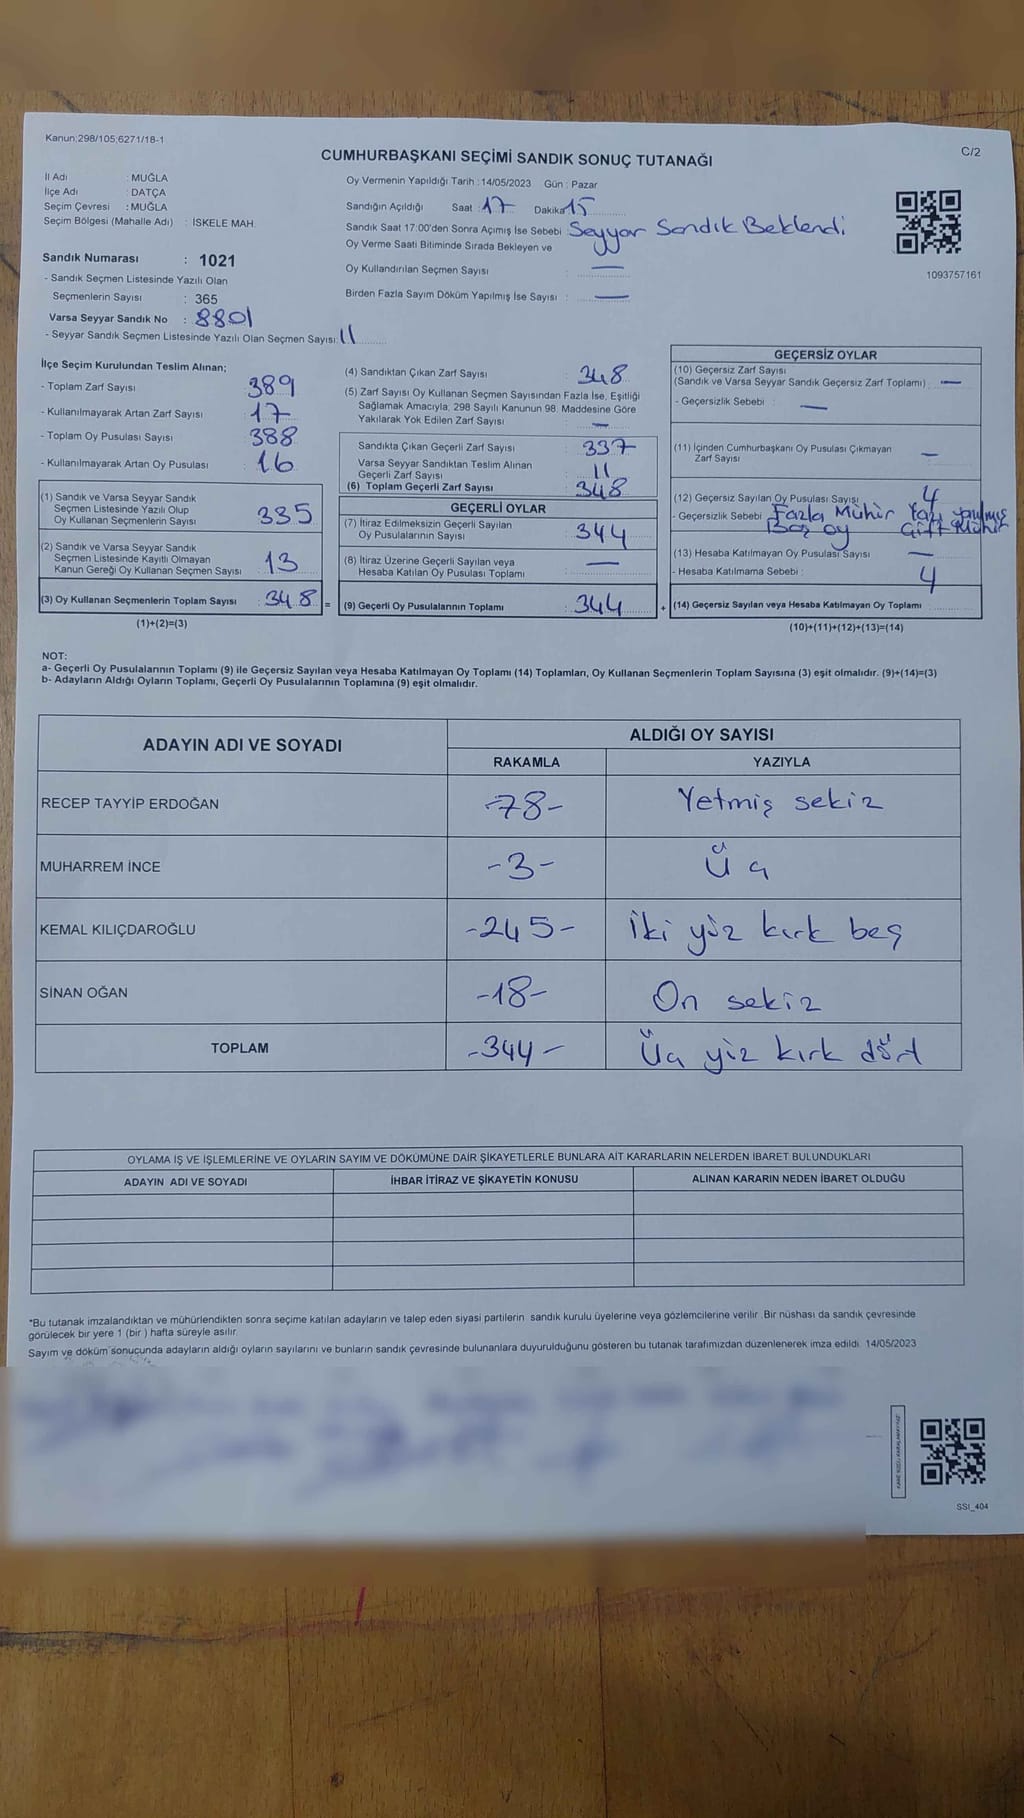 Kanun;298/105;6271/18-1
C/2
CUMHURBAŞKANI SEÇİMİ SANDIK SONUÇ TUTANAĞI
İl Adı : MUĞLA
İlçe Adı : DATÇA
Seçim Çevresi : MUĞLA
Seçim Bölgesi (Mahalle Adı) : İSKELE MAH.
Oy Vermenin Yapıldığı Tarih : 14/05/2023 Gün : Pazar
Sandığın Açıldığı Saat : 17 Dakika 15
Sandık Saat 17:00'den Sonra Açımış İse Sebebi : Seyyar Sandık Beklendi
Oy Verme Saati Bitiminde Sırada Bekleyen ve
Oy Kullandırılan Seçmen Sayısı : —
Birden Fazla Sayım Döküm Yapılmış İse Sayısı : —
1093757161
Sandık Numarası : 1021
- Sandık Seçmen Listesinde Yazılı Olan
Seçmenlerin Sayısı : 365
Varsa Seyyar Sandık No : 8801
- Seyyar Sandık Seçmen Listesinde Yazılı Olan Seçmen Sayısı: 11
İlçe Seçim Kurulundan Teslim Alınan;
- Toplam Zarf Sayısı 389
- Kullanılmayarak Artan Zarf Sayısı : 17
- Toplam Oy Pusulası Sayısı 388
- Kullanılmayarak Artan Oy Pusulası : 16
(1) Sandık ve Varsa Seyyar Sandık
Seçmen Listesinde Yazılı Olup
Oy Kullanan Seçmenlerin Sayısı : 335
(2) Sandık ve Varsa Seyyar Sandık
Seçmen Listesinde Kayıtlı Olmayan
Kanun Gereği Oy Kullanan Seçmen Sayısı : 13
(3) Oy Kullanan Seçmenlerin Toplam Sayısı : 348
(1)+(2)=(3)
(4) Sandıktan Çıkan Zarf Sayısı : 348
(5) Zarf Sayısı Oy Kullanan Seçmen Sayısından Fazla İse, Eşitliği
Sağlamak Amacıyla, 298 Sayılı Kanunun 98. Maddesine Göre
Yakılarak Yok Edilen Zarf Sayısı : —
Sandıkta Çıkan Geçerli Zarf Sayısı : 337
Varsa Seyyar Sandıktan Teslim Alınan
Geçerli Zarf Sayısı : 11
(6) Toplam Geçerli Zarf Sayısı : 348
GEÇERLİ OYLAR
(7) İtiraz Edilmeksizin Geçerli Sayılan
Oy Pusulalarının Sayısı : 344
(8) İtiraz Üzerine Geçerli Sayılan veya
Hesaba Katılan Oy Pusulası Toplamı : —
= (9) Geçerli Oy Pusulalarının Toplamı : 344
GEÇERSİZ OYLAR
(10) Geçersiz Zarf Sayısı
(Sandık ve Varsa Seyyar Sandık Geçersiz Zarf Toplamı) : —
- Geçersizlik Sebebi : —
(11) İçinden Cumhurbaşkanı Oy Pusulası Çıkmayan
Zarf Sayısı : —
(12) Geçersiz Sayılan Oy Pusulası Sayısı : 4
- Geçersizlik Sebebi : Fazla Mühür Yazı yazılmış
Boş oy Çift Mühür
(13) Hesaba Katılmayan Oy Pusulası Sayısı : —
- Hesaba Katılmama Sebebi :
+ (14) Geçersiz Sayılan veya Hesaba Katılmayan Oy Toplamı : 4
(10)+(11)+(12)+(13)=(14)
NOT:
a- Geçerli Oy Pusulalarının Toplamı (9) ile Geçersiz Sayılan veya Hesaba Katılmayan Oy Toplamı (14) Toplamları, Oy Kullanan Seçmenlerin Toplam Sayısına (3) eşit olmalıdır. (9)+(14)=(3)
b- Adayların Aldığı Oyların Toplamı, Geçerli Oy Pusulalarının Toplamına (9) eşit olmalıdır.
ADAYIN ADI VE SOYADI ALDIĞI OY SAYISI
RAKAMLA YAZIYLA
RECEP TAYYİP ERDOĞAN -78- Yetmiş sekiz
MUHARREM İNCE -3- Üç
KEMAL KILIÇDAROĞLU -245- İki yüz kırk beş
SİNAN OĞAN -18- On sekiz
TOPLAM -344- Üç yüz kırk dört
OYLAMA İŞ VE İŞLEMLERİNE VE OYLARIN SAYIM VE DÖKÜMÜNE DAİR ŞİKAYETLERLE BUNLARA AİT KARARLARIN NELERDEN İBARET BULUNDUKLARI
ADAYIN ADI VE SOYADI İHBAR İTİRAZ VE ŞİKAYETİN KONUSU ALINAN KARARIN NEDEN İBARET OLDUĞU
*Bu tutanak imzalandıktan ve mühürlendikten sonra seçime katılan adayların ve talep eden siyasi partilerin sandık kurulu üyelerine veya gözlemcilerine verilir. Bir nüshası da sandık çevresinde
görülecek bir yere 1 (bir ) hafta süreyle asılır.
Sayım ve döküm sonucunda adayların aldığı oyların sayılarını ve bunların sandık çevresinde bulunanlara duyurulduğunu gösteren bu tutanak tarafımızdan düzenlenerek imza edildi. 14/05/2023
SSI_404